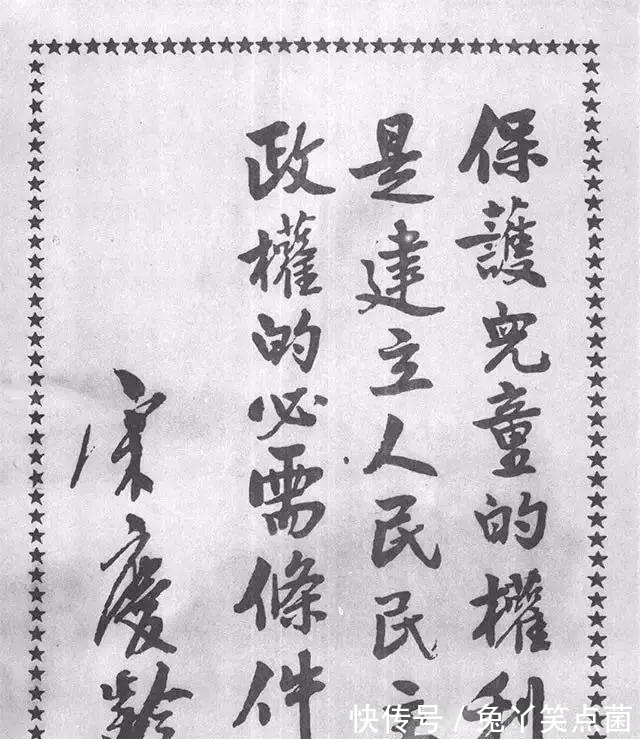 保護兒童的權利
是建立人民民主
政權的必需條件
宋慶齡
快传号/兔丫笑点菌